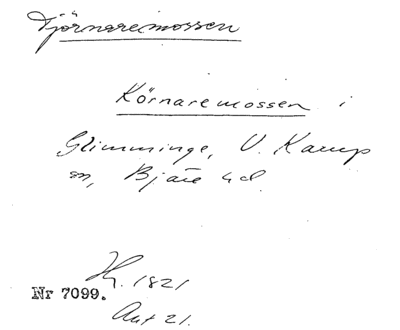 Tjörnaremossen
Körnaremossen i
Glimminge, V. Karup
sn, Bjäre hd.
Hy. 1821
Nr 7099.
Akt 21.